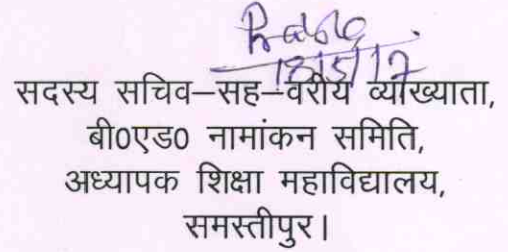 18/5/17
सदस्य सचिव–सह–वरीय व्याख्याता,
बी0एड0 नामांकन समिति,
अध्यापक शिक्षा महाविद्यालय,
समस्तीपुर।